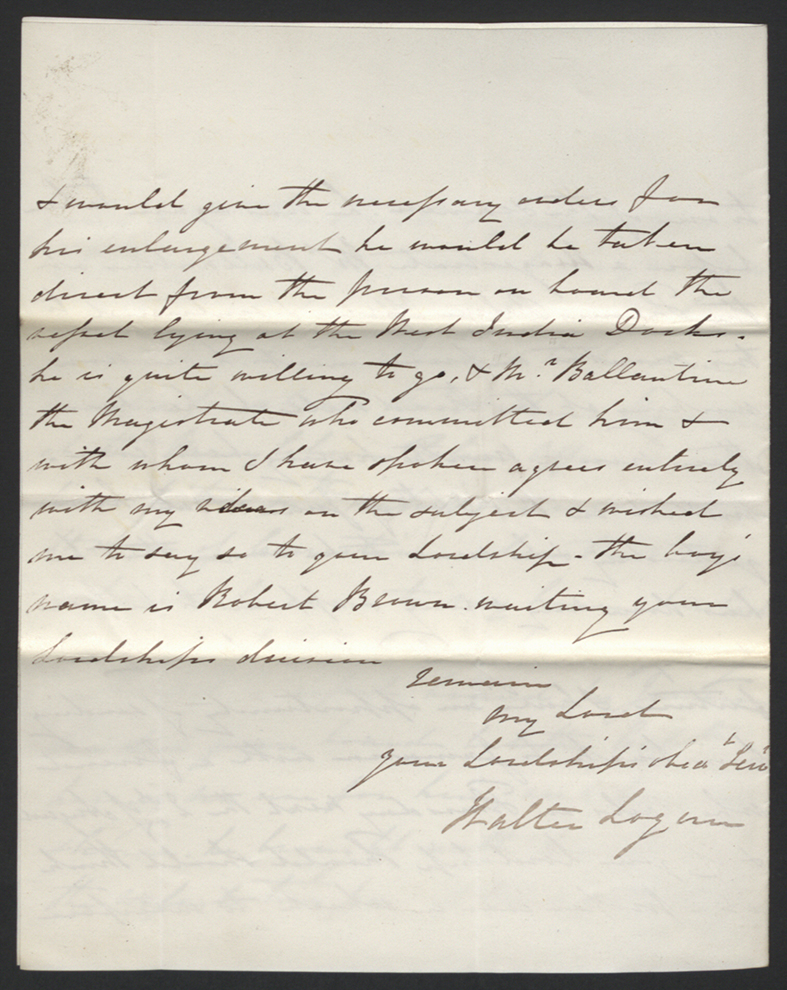 & would give the necessary orders for
his enlargement he would be taken
direct from the prison on board the
vessel lying at the West India Docks.
he is quite willing to go, & Mr. Ballantine
the Magistrate who committed him &
with whom I have spoken agrees entirely
with my ideas on the subject & wished
me to say so to your Lordship - the boy's
name is Robert Brown. waiting your
Lordships decision
remain
my Lord
your Lordship's obedt Serv
Walter Logan